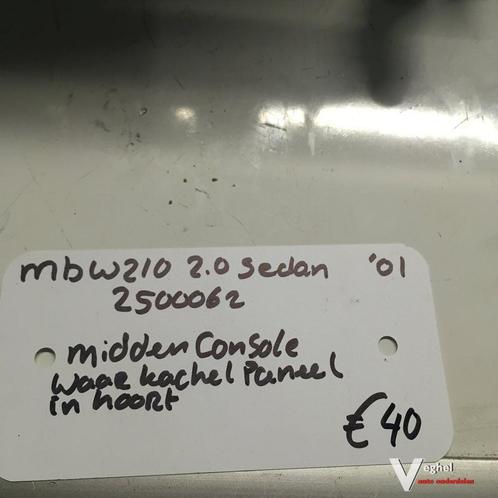 mbw210 2.0 Sedan '01
2500062
midden Console
waar kachel Paneel
in hoort
€40
Veghel
auto onderdelen